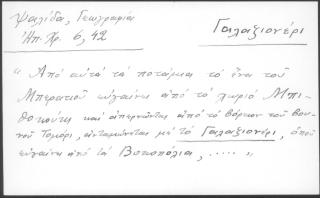 Ψαλίδα, Γεωγραφία
Ἠπ. Χρ. 6, 42
Γαλαξιονέρι
" Ἀπό αὐτά τά ποτάμια τό ἕνα τοῦ
Μπερατιοῦ εὐγαίνει ἀπό τό χωριό Μπι-
θοκούκι καί ἀπερνῶντας ἀπό τό βόρειον τοῦ βου-
νοῦ Τομόρι, ἀνταμώνεται μέ τό Γαλαξιονέρι, ὁποῦ
εὐγαίνει ἀπό τά Βοσκοπόλια, ..... "